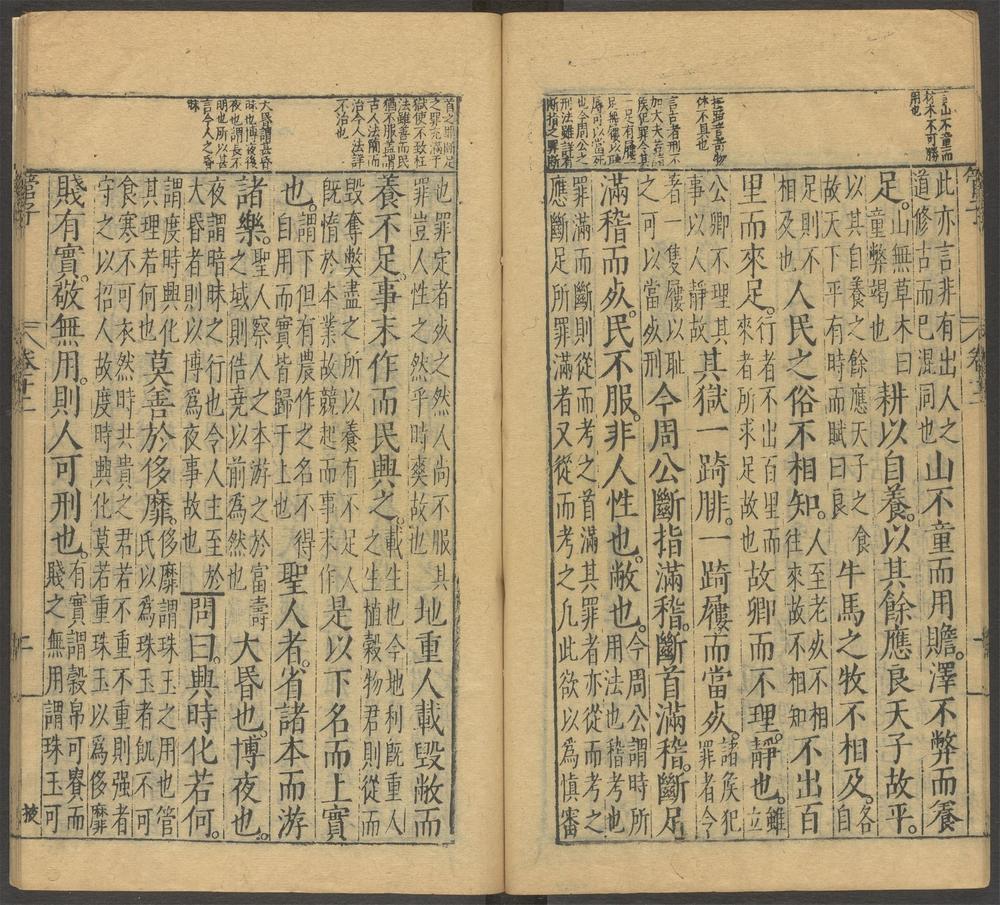 言山不童而
材木不可勝
用也
言者刑不
加大夫
一足有屨
管子
卷十二
此亦言非有出人之
道修古而巳混同也
山不童而用贍。澤不弊而養
足。
山無草木曰
童弊竭也
耕以自養。以其餘應良天子故平。
以其自養之餘應天子之食
故天下平有時而賦曰良
牛馬之牧不相及。
各
自
足則不
相及也
人民之俗不相知。
人至老死不相
往來故不相知
不出百
里而來足。
行者不出百里而
來者所求足故也
故卿而不理。靜也。
雖
立
公卿不理其
事以人靜故
其獄一踦腓。一踦屨而當死。
諸侯犯
罪者令
著一隻屨以恥
之可以當死刑
今周公斷指滿稽。斷首滿稽。斷足
滿稽而死。民不服。非人性也。敝也。
今周公謂時所
用法也稽考也
罪滿而斷則從而考之首滿其罪者亦從而考之
應斷足所罪滿者又從而考之凡此欲以為慎審
首之罪斷足
之罪充滿于
獄使不致枉
法雖善而民
猶不服蓋謂
古人法簡而
治今人法詳
不治也
大昏謂甚昏
昧也博夜後
夜也謂長不
明也所以甚
言今人之昏
昧
也罪定者死之然人尚不服其
罪豈人性之然乎時獘故也
地重人載毀敝而
養不足。事末作而民興之。
載生也今地利旣重人
之生植穀物君則從而
毀奪獘盡之所以養有不足人
旣惰於本業故競起而事末作
是以下名而上實
也。
謂下但有農作之名不得
自用而實皆歸于上也
聖人者。省諸本而游
諸樂。
聖人察人之本游之於富壽
之域則俈堯以前為然也
大昏也。博夜也。
夜謂暗昧之行也令人主至於
大昏者則以博為夜事故也
問曰。興時化若何。
謂度時興化
其理若何也
莫善於侈靡。
侈靡謂珠玉之用也管
氏以為珠玉者飢不可
食寒不可衣然時共貴之君若不重不重則强者
守之以招人故度時興化莫若重珠玉以為侈靡
賤有實。敬無用。則人可刑也。
有實謂穀帛可賽而
賤之無用謂珠玉可
管子
卷十二
二